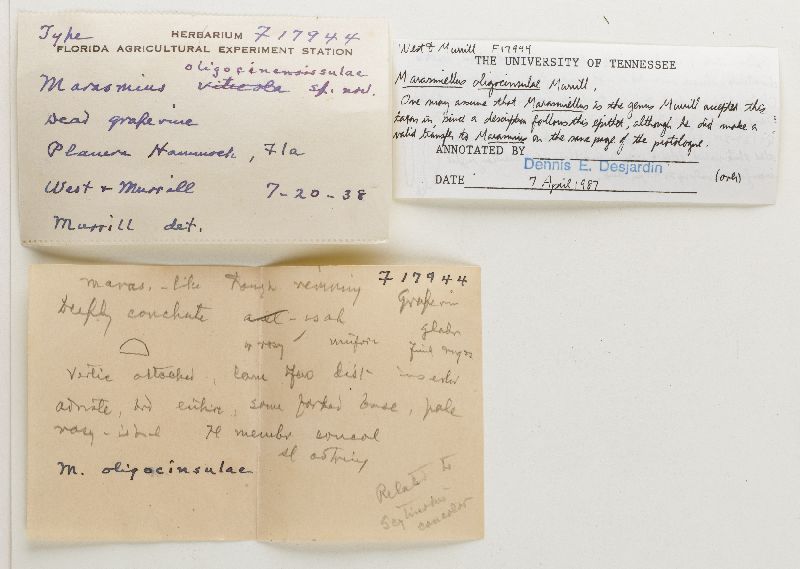 Type HERBARIUM F 17944
FLORIDA AGRICULTURAL EXPERIMENT STATION
oligocinensissulae
Marasmius viticola sp. nov.
Dead grapevine
Planera Hammock, Fla
West & Murrill 7-20-38
Murrill det.
West & Murrill F17944
THE UNIVERSITY OF TENNESSEE
Marasmiellus oligocinsulae Murrill.
One may assume that Marasmiellus is the genus Murrill accepted this
taxon in since a description follows this epithet, although he did make a
valid transfer to Marasmius on the same page of the protologue.
ANNOTATED BY
Dennis E. Desjardin
DATE 7 April 1987
F 17944
maras.-like tough reviving Grapevin
Deeply conchate
glabr
attached,
adnate, entire, some forked base, pale
rosy- membr concol
M. oligocinsulae
Related to
concolor